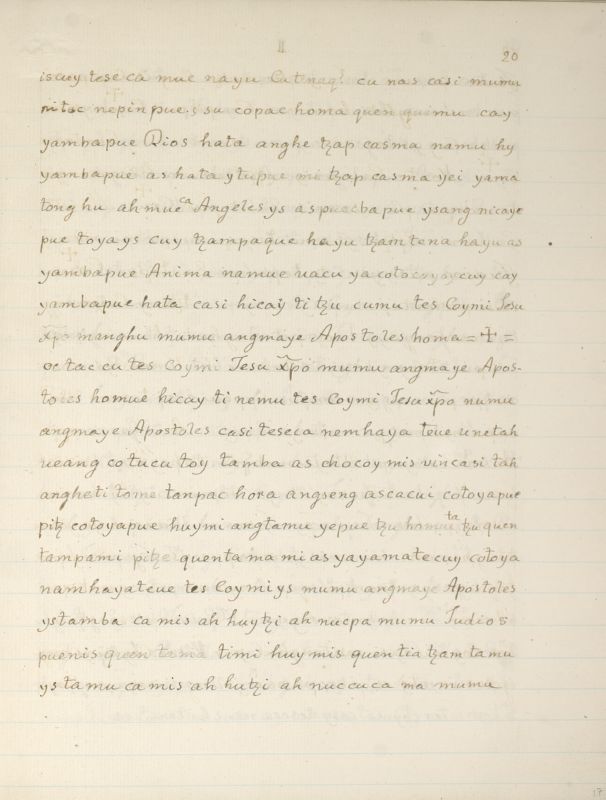 20
iscuy tese ca mue nayu cu nas casi mumu
nepinpue su copac homa quen quimu cay
yambapue Dios hata anghe tzap casma namu hy
yambapue as hata ytupue mi tzap casma yei yama
tong hu ah mue ca Angeles ys as puecbapue ysang nicaye
pue toya ys cuy tzampaque hayu tzamtena hayu as
yambapue Anima namue vacu ya cuy cay
yambapue hata casi hicaÿ ti tzu cumu tes Coymi Jesu
xp̃o manghu mumu angmaye Apostoles homa = ✢ =
oc tac cu tes Coymi Jesu xp̃o mumu angmaye Apos-
toles homue hicay ti nemu tes Coymi Jesu xp̃o numu
angmaye Apostoles casi teseca nemhaya teue unetah
ueang cotucu toy tamba as chocoy mis vincasi tah
angheti tome tanpac hora angseng ascacui cotoyapue
pitz cotoyapue huymi angtamu yepue tzu homue ta tzu quen
tampami pitze quenta ma mi as yayamate cuy cotoya
namhayateue tes Coymi ys mumu angmaye Apostoles
ystamba ca mis ah huytzi ah nucpa mumu Judios
puenis quen tama timi huy mis quen tia tzam tamu
ys tamu ca mis ah hutzi ah nuccuca ma mumu
17